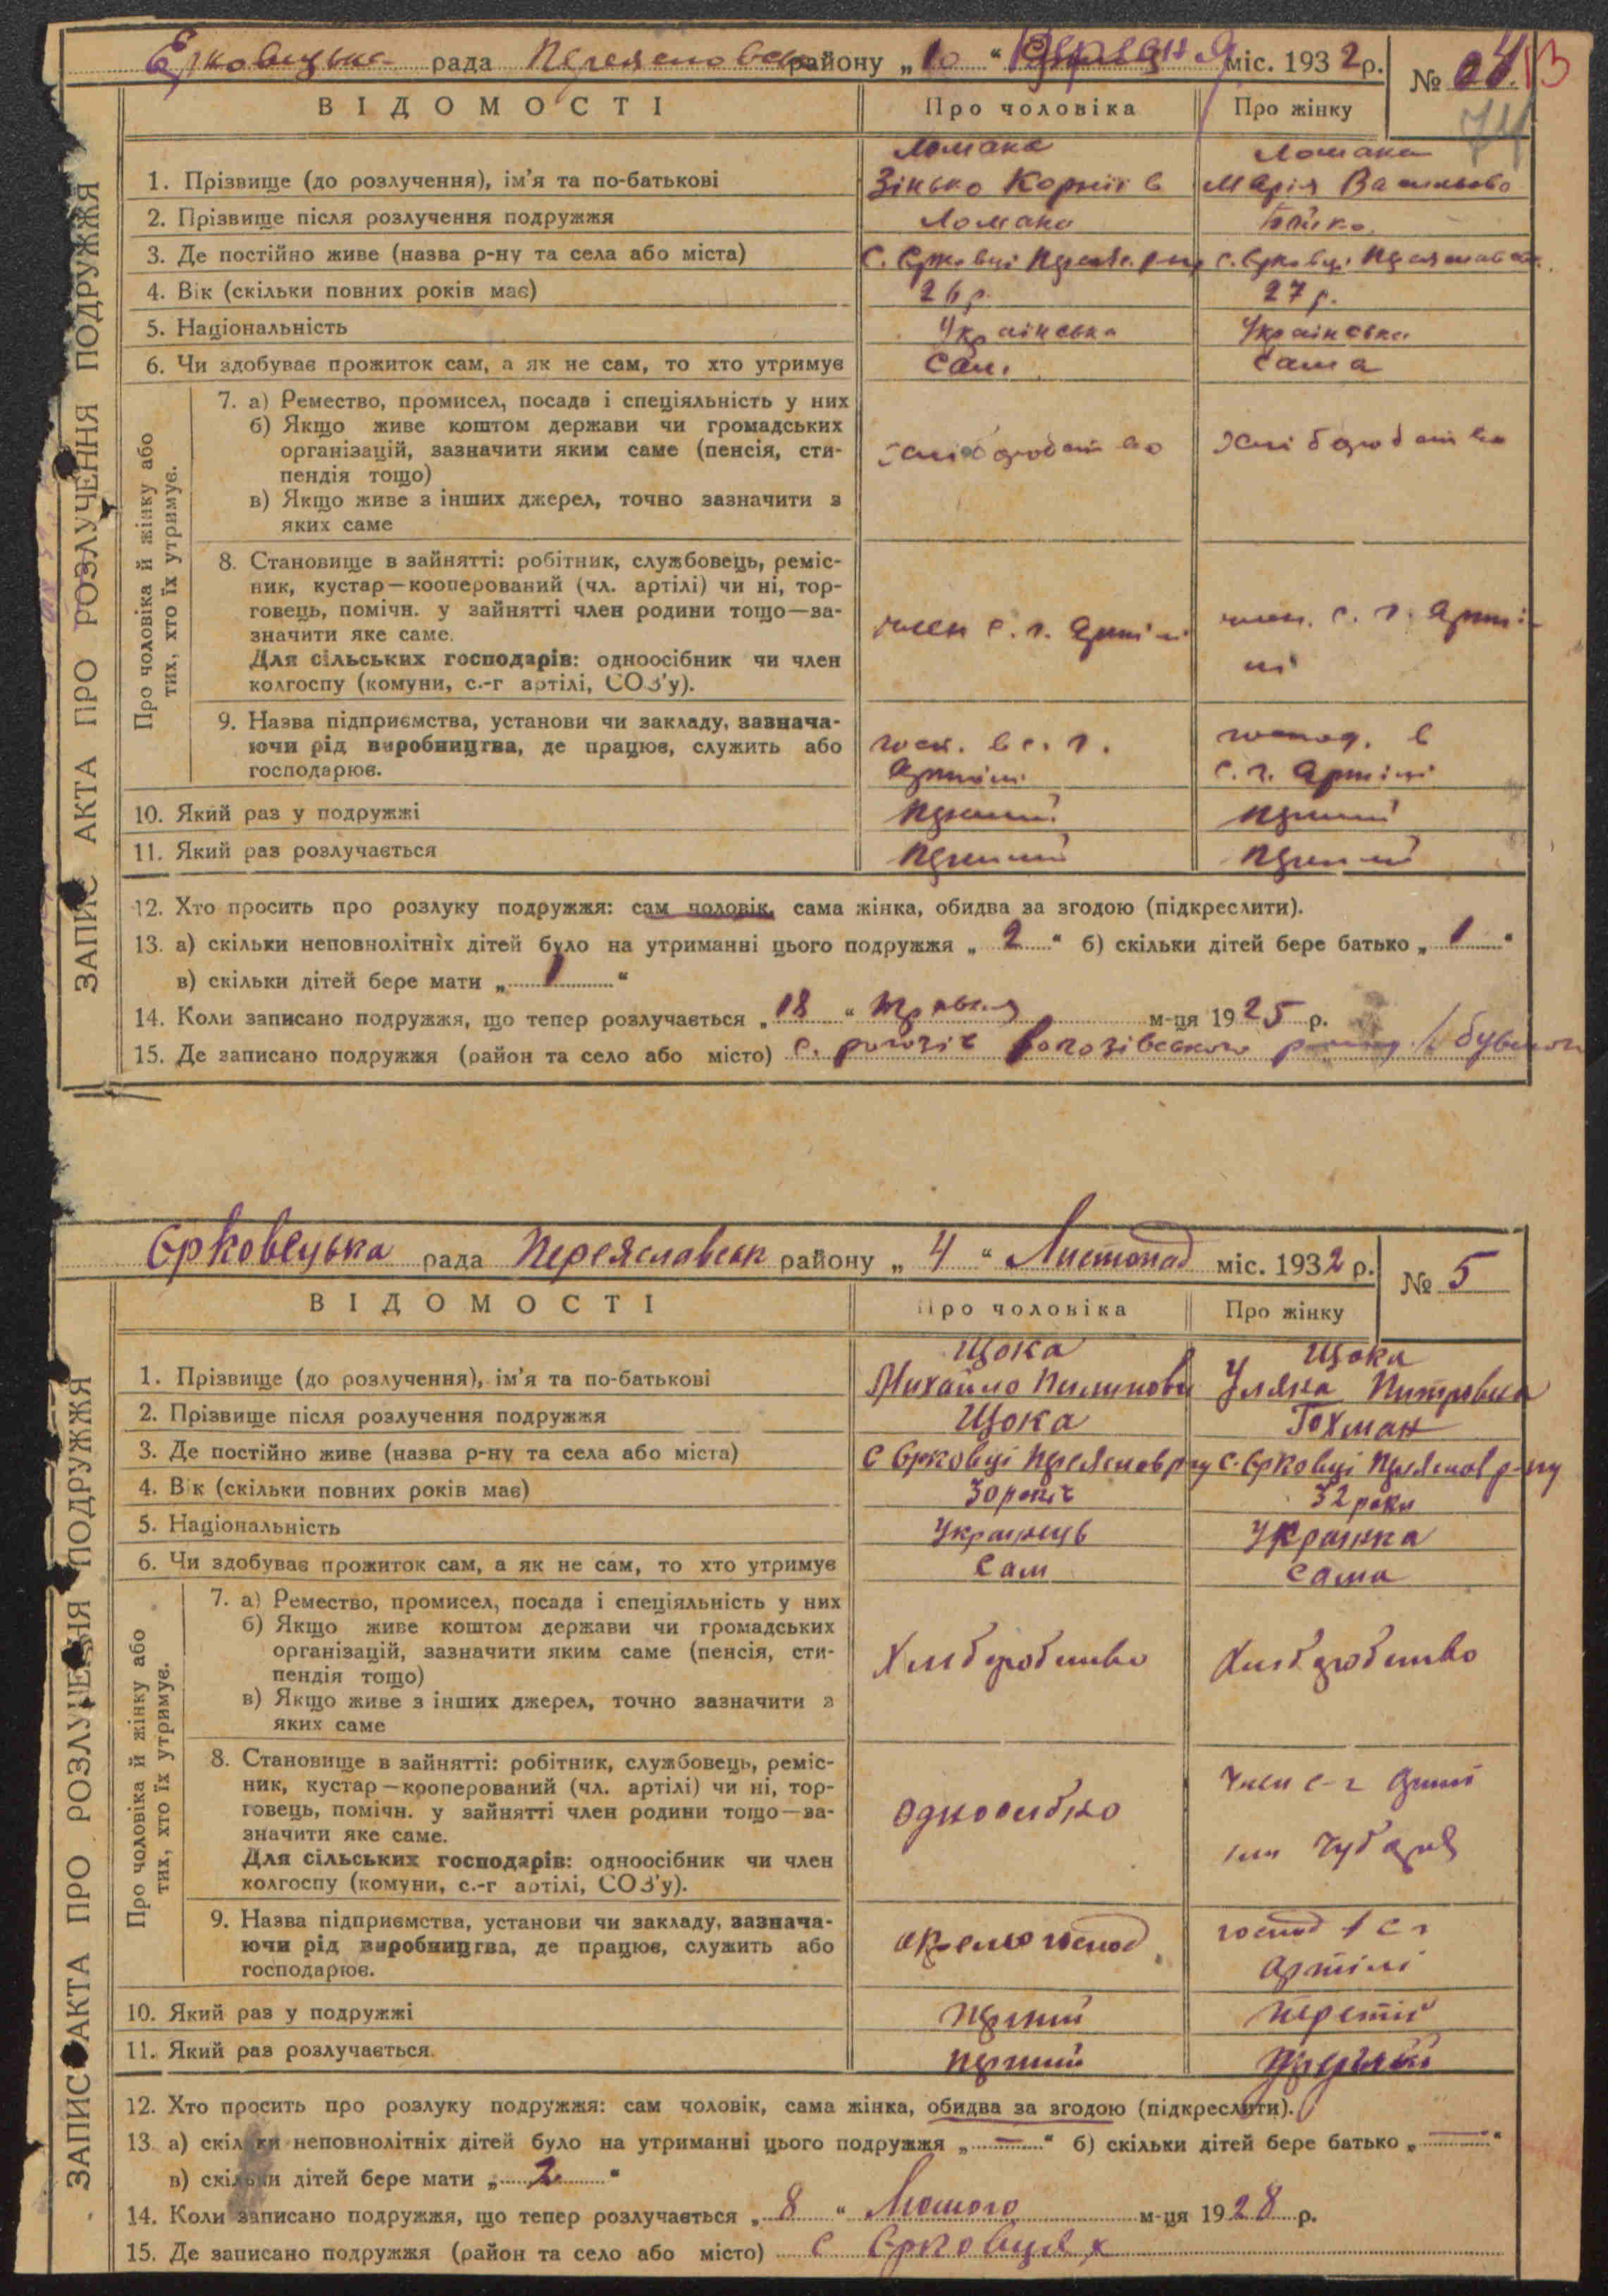 Єрковецька рада Переяславськ району „ 10 “ Червня міс. 1932 р.
№ 04
13
74
ВІДОМОСТІ Про чоловіка Про жінку
Ломака Ломака
1. Прізвище (до розлучення), ім'я та по-батькові Зінько Корніїв Марія Васильова
2. Прізвище після розлучення подружжя Ломака Бойко
3. Де постійно живе (назва р-ну та села або міста) с. Єрковці Переясл. р-ну с. Єрковці Переяславськ.
4. Вік (скільки повних років має) 26 р. 27 р.
5. Національність Українська Українська
6. Чи здобуває прожиток сам, а як не сам, то хто утримує Сам. Сама
Про чоловіка й жінку або
тих, хто їх утримує.
7. а) Ремество, промисел, посада і спеціяльність у них
б) Якщо живе коштом держави чи громадських
організацій, зазначити яким саме (пенсія, сти- хліборобство хліборобство
пендія тощо)
в) Якщо живе з інших джерел, точно зазначити з
яких саме
8. Становище в зайнятті: робітник, службовець, реміс-
ник, кустар—кооперований (чл. артілі) чи ні, тор-
говець, помічн. у зайнятті член родини тощо—за- член с. г. артілі член. с. г. арті-
значити яке саме. лі
Для сільських господарів: одноосібник чи член
колгоспу (комуни, с.-г артілі, СОЗ'у).
9. Назва підприємства, установи чи закладу, зазнача-
ючи рід виробництва, де працює, служить або в с. г. господ. в
господарює. артілі с. г. артілі
10. Який раз у подружжі перший перший
11. Який раз розлучається перший перший
12. Хто просить про розлуку подружжя: сам чоловік, сама жінка, обидва за згодою (підкреслити).
13. а) скільки неповнолітніх дітей було на утриманні цього подружжя „ 2 “ б) скільки дітей бере батько „ 1 “
в) скільки дітей бере мати „ 1 “
14. Коли записано подружжя, що тепер розлучається „ 18 “ травня м-ця 1925 р.
15. Де записано подружжя (район та село або місто) с. Рогозів Рогозівського району
ЗАПИС АКТА ПРО РОЗЛУЧЕННЯ ПОДРУЖЖЯ
Єрковецька рада Переяславськ району „ 4 “ Листопад міс. 1932 р.
№ 5
ВІДОМОСТІ Про чоловіка Про жінку
Щока Щока
1. Прізвище (до розлучення), ім'я та по-батькові Михайло Пилипови Уляна Питровна
2. Прізвище після розлучення подружжя Щока Гохман
3. Де постійно живе (назва р-ну та села або міста) с Єрковці Переяслав р-ну с. Єрковці Переяслав р-ну
4. Вік (скільки повних років має) 30 років 32 роки
5. Національність Українець Українка
6. Чи здобуває прожиток сам, а як не сам, то хто утримує Сам Сама
Про чоловіка й жінку або
тих, хто їх утримує.
7. а) Ремество, промисел, посада і спеціяльність у них
б) Якщо живе коштом держави чи громадських
організацій, зазначити яким саме (пенсія, сти- Хліборобство Хліборобство
пендія тощо)
в) Якщо живе з інших джерел, точно зазначити з
яких саме
8. Становище в зайнятті: робітник, службовець, реміс- Член с-г артілі
ник, кустар—кооперований (чл. артілі) чи ні, тор-
говець, помічн. у зайнятті член родини тощо—за- одноосібно
значити яке саме. Чубаря
Для сільських господарів: одноосібник чи член
колгоспу (комуни, с.-г артілі, СОЗ'у).
9. Назва підприємства, установи чи закладу, зазнача- господ с г
ючи рід виробництва, де працює, служить або господ артілі
господарює.
10. Який раз у подружжі перший перший
11. Який раз розлучається перший перший
12. Хто просить про розлуку подружжя: сам чоловік, сама жінка, обидва за згодою (підкреслити).
13. а) скільки неповнолітніх дітей було на утриманні цього подружжя „ — “ б) скільки дітей бере батько „ — “
в) скільки дітей бере мати „ 2 “
14. Коли записано подружжя, що тепер розлучається „ 8 “ Лютого м-ця 1928 р.
15. Де записано подружжя (район та село або місто) с Єрковцях
ЗАПИС АКТА ПРО РОЗЛУЧЕННЯ ПОДРУЖЖЯ